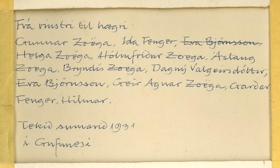 Frá vinstri til hægri
Gunnar Zoëga, Ida Fenger, Eva Björnsson,
Helga Zoëga, Hólmfríður Zoega. Áslaug
Zoega, Bryndís Zoega, Dagný Valgeirsdóttir,
Eva Björnsson, Geir Agnar Zoega, Garðar
Fenger, Hilmar.
Tekið sumarið 1931
í Gufunesi